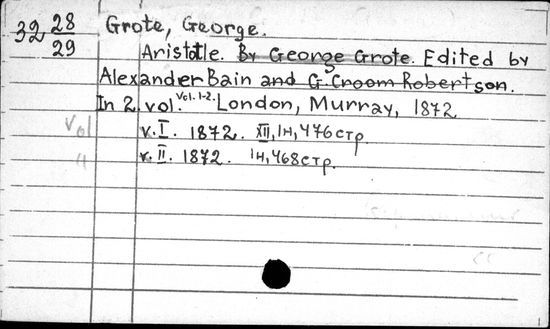 32 28/29 Grote, George.
Aristotle. By George Grote. Edited by
Alexander Bain and G. Croom Robertson.
In 2 vol. Vol. 1-2. London, Murray, 1872
Vol v. I. 1872. XII, 1н, 476 стр.
" v. II. 1872. 1н, 468 стр.